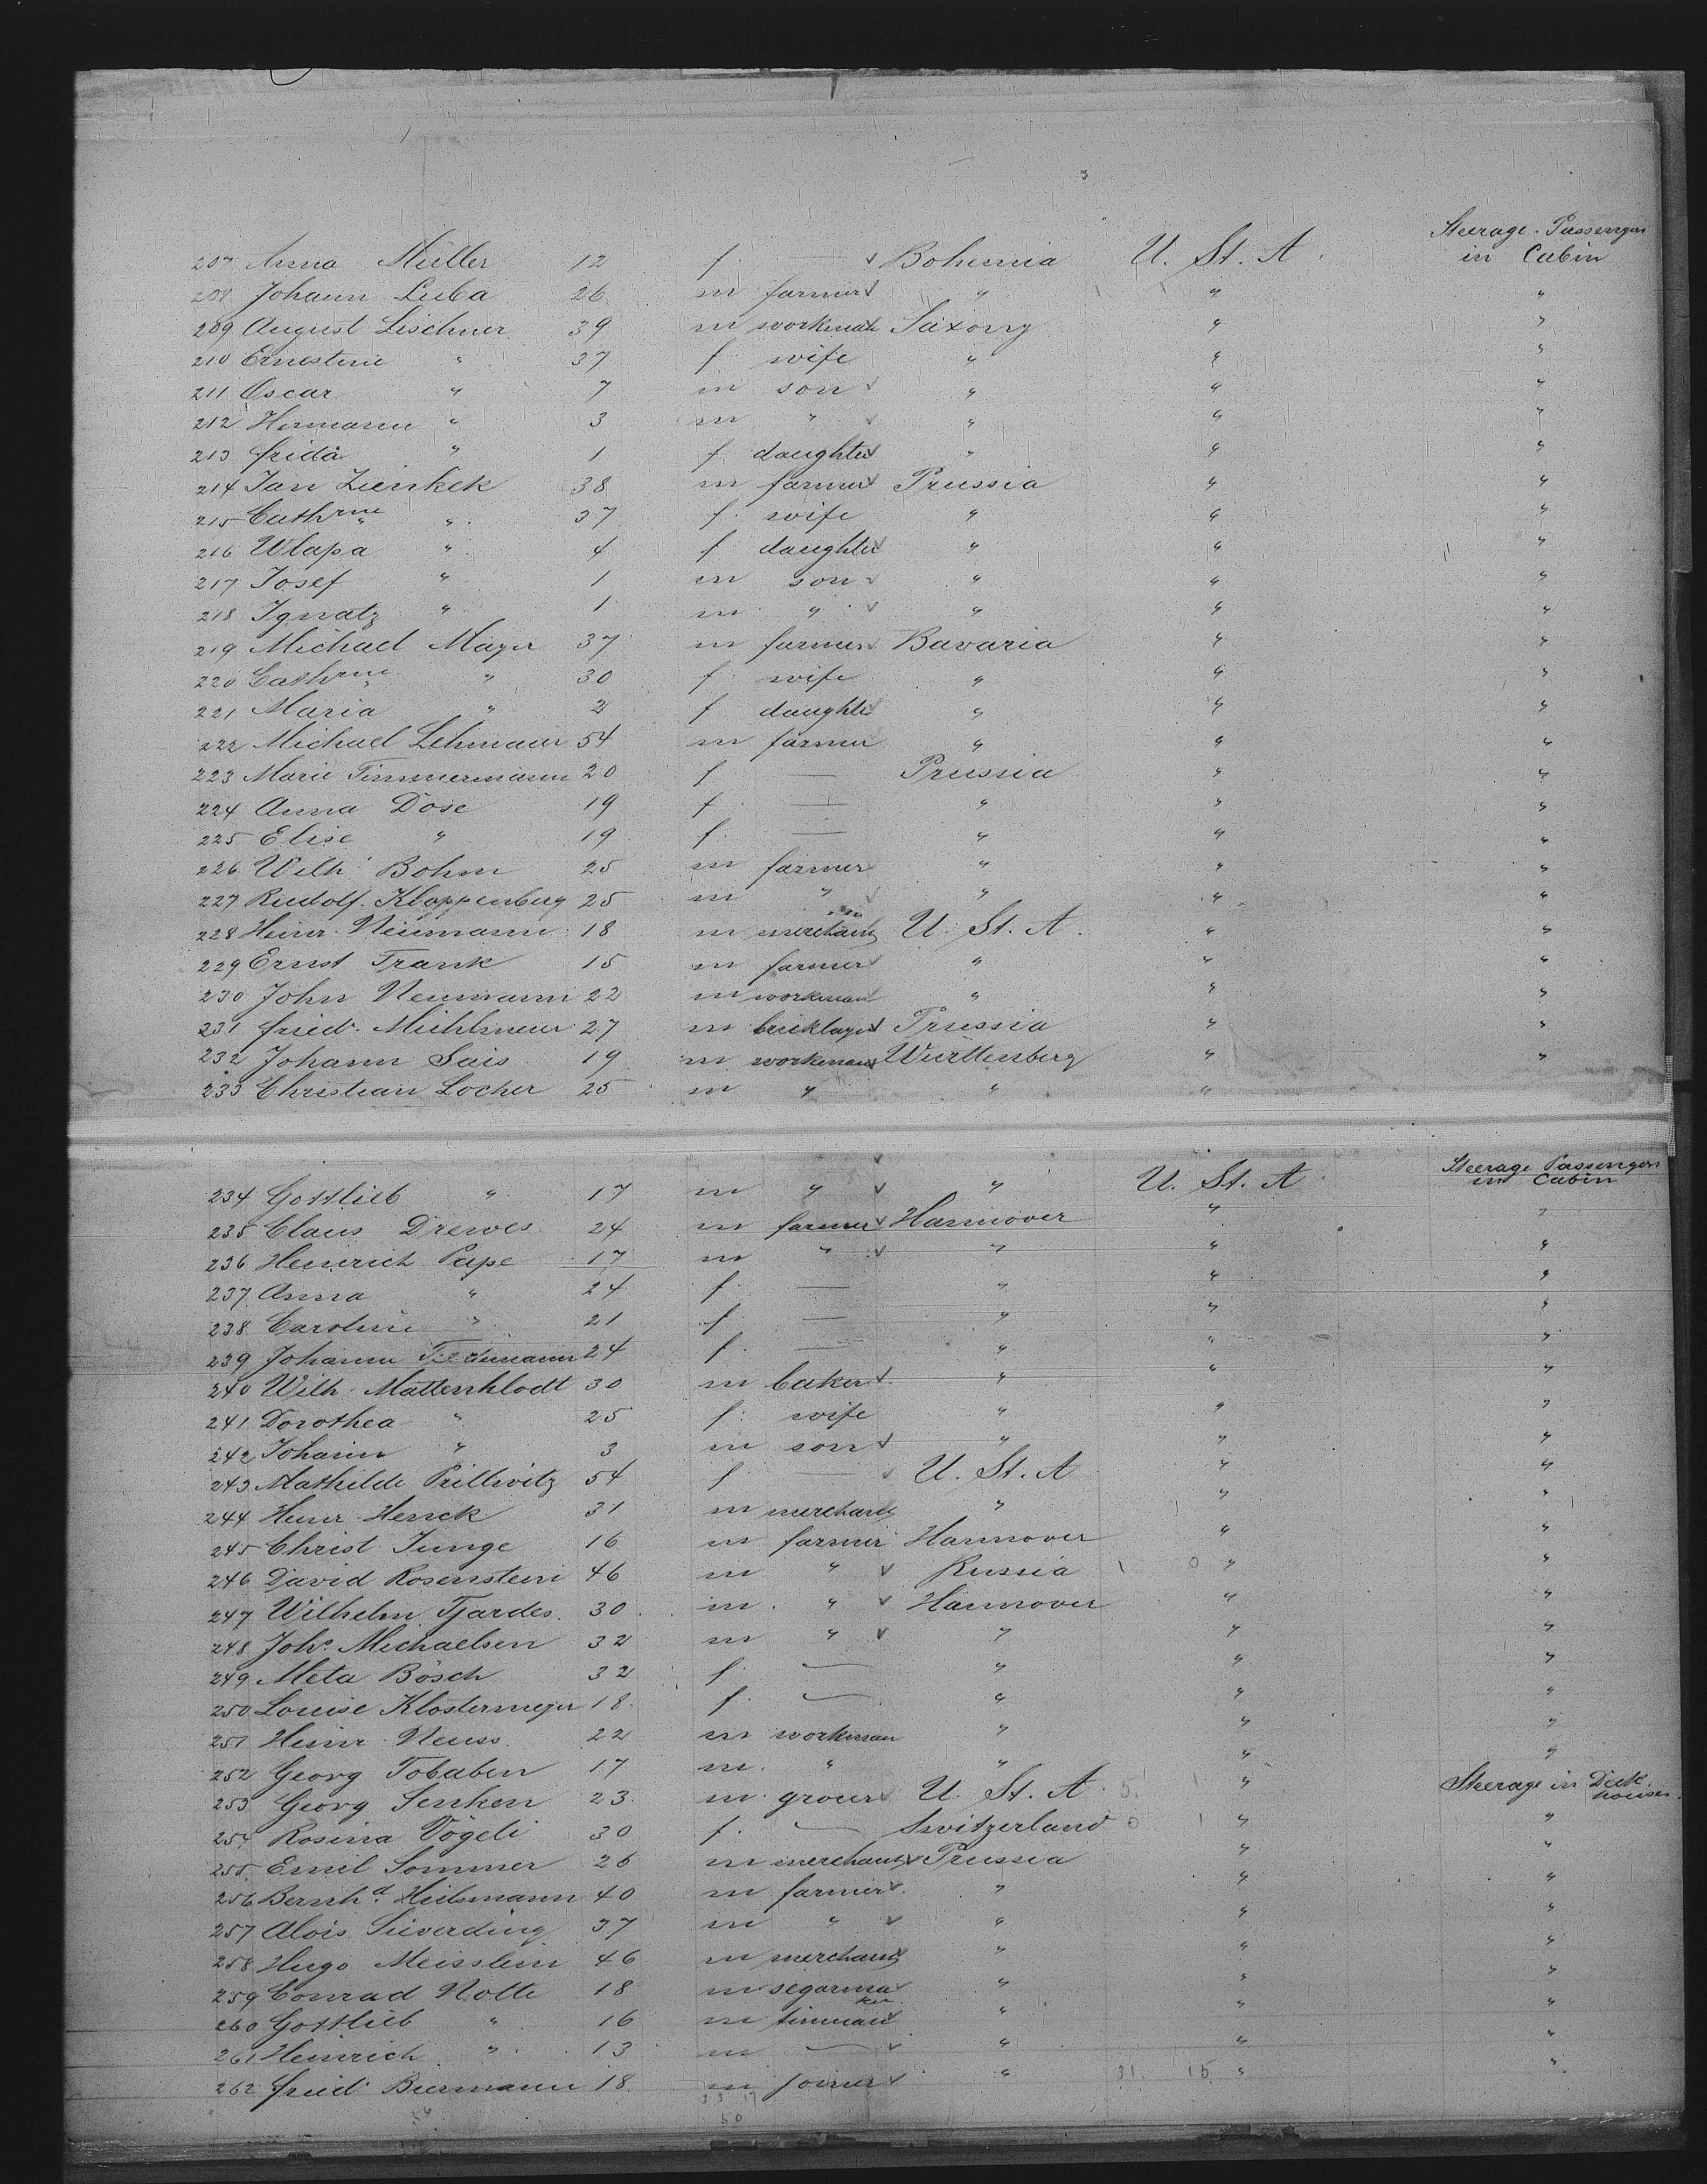 Steerage Passengers
207 Anna Müller 12 f. — Bohemia U. St. A. in Cabin
208 Johann Luba 26 m farmer " " "
209 August Lischner 39 m workman Saxony " "
210 Ernestine " 37 f wife " " "
211 Oscar " 7 m son " " "
212 Hermann " 3 m " " " "
213 Frida " 1 f daughter " " "
214 Jan Zienkek 38 m farmer Prussia " "
215 Cathrine " 37 f. wife " " "
216 Wlapa " 4 f daughter " " "
217 Josef " 1 m son " " "
218 Ignatz " 1 m " " " "
219 Michael Mayer 37 m farmer Bavaria " "
220 Cathrine " 30 f wife " " "
221 Maria " 2 f daughter " " "
222 Michael Lehmaier 54 m farmer " " "
223 Marie Timmermann 20 f — Prussia " "
224 Anna Dose 19 f — " " "
225 Elise " 19 f. — " " "
226 Wilh. Bohm 25 m farmer " " "
227 Rudolf Kloppenburg 25 m " " " "
228 Heinr. Neumann 18 m merchant U. St. A. " "
229 Ernst Frank 15 m farmer " " "
230 John Neumann 22 m workman " " "
231 Fried. Mühlmeier 27 m bricklayer Prussia " "
232 Johann Sais 19 m workman Württemberg " "
233 Christian Locher 25 m " " " "
Steerage Passengers
234 Gottlieb " 17 m " " U. St. A. in Cabin
235 Claus Drewes 24 m farmer Hannover " "
236 Heinrich Pape 17 m " " " "
237 Anna " 24 f. — " " "
238 Caroline " 21 f. — " " "
239 Johanna 24 f. — " " "
240 Wilh. Mattenklodt 30 m baker " " "
241 Dorothea " 25 f. wife " " "
242 Johann " 3 m son " " "
243 Mathilde Prillwitz 54 f — U. St. A " "
244 Heinr. Henck 31 m merchant " " "
245 Christ Junge 16 m farmer Hannover " "
246 David Rosenstein 46 m " Russia " "
247 Wilhelm Tjardes 30 m " Hannover " "
248 Johs. Michaelsen 32 m " " " "
249 Meta Bösch 32 f. — " " "
250 Louise Klostermeyer 18 f. — " " "
251 Heinr. Neuss 22 m workman " " "
252 Georg Tobaben 17 m. " " " "
253 Georg Senken 23 m grocer U. St. A. " Steerage in Deck houses
254 Rosina Vögeli 30 f. — Switzerland " "
255 Emil Sommer 26 m merchant Prussia " "
256 Bernhd. Hülsmann 40 m farmer " " "
257 Alois Sieverding 37 m " " " "
258 Hugo Meisslein 46 m merchant " " "
259 Conrad Notte 18 m segarmaker " " "
260 Gottlieb " 16 m tinman " " "
261 Heinrich " 13 m — " " "
262 Fried. Biermann 18 m joiner " 31. 15 " "
33 17
50